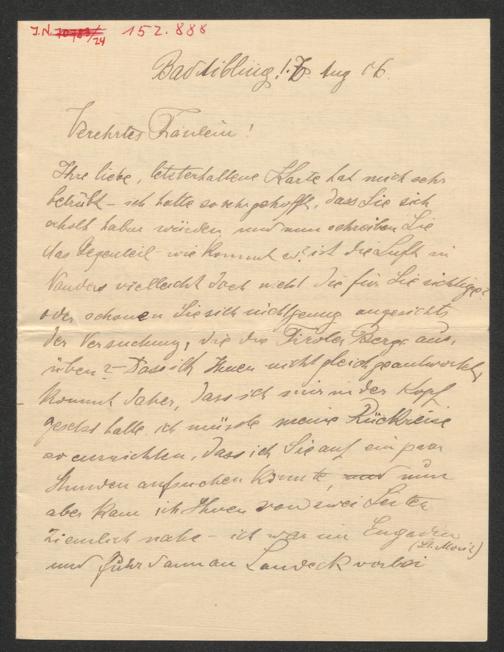 J.N. 70783/24 152.888
Bad Aibling, 17. Aug 16.
Verehrtes Fräulein!
Ihre liebe, letzterhaltene Karte hat mich sehr
betrübt – ich hatte so sehr gehofft, dass Sie sich
erholt haben würden und nun schreiben Sie
das Gegenteil – wie kommt es? ist die Luft in
Nauders vielleicht doch nicht die für Sie richtige?
oder schonen Sie sich nicht genug angesichts
der Versuchung, die die Tiroler Berge aus-
üben? – Dass ich Ihnen nicht gleich geantwortet,
kommt daher, dass ich mir in den Kopf
gesetzt hatte, ich müsste meine Rückreise
so einrichten, dass ich Sie auf ein paar
Stunden aufsuchen könnte, und nun
aber kam ich Ihnen von zwei Seiten
ziemlich nahe – ich war im Engadin
(St. Moritz)
und fuhr dann an Landeck vorbei